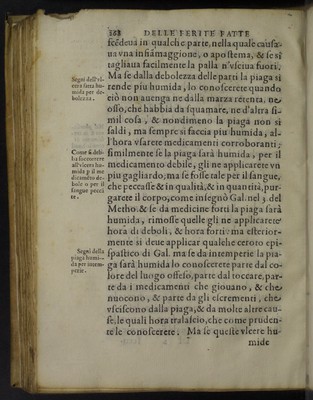 168 DELLE FERITE FATTE
scēdeua in qualche parte, nella quale causa-
ua vna infiāmaggione, o apostema, & se si
tagliaua facilmente la palla n'vsciua fuori.
Ma se dalla debolezza delle parti la piaga si
rende piu humida, lo conoscerete quando
ciò non auenga ne dalla marza retenta, ne
osso, che habbia da squamare, ne d'altra si-
mil cosa, & nondimeno la piaga non si
saldi, ma sempre si faccia piu humida, al-
l'hora vsarete medicamenti corroboranti;
similmente se la piaga sarà humida, per il
medicamento debile, gli ne applicarete vn
piu gagliardo; ma se fosse tale per il sangue,
che peccasse & in qualità, & in quantità, pur-
garete il corpo, come insegnò Gal. nel 3. del
Metho: & se da medicine forti la piaga sarà
humida, rimosse quelle gli ne applicarete
hora di deboli, & hora forti: ma esterior-
mente si deue applicar qualche ceroto epi-
spastico di Gal. ma se da intemperie la pia-
ga sarà humida lo conoscerete parte dal co-
lore del luogo offeso, parte dal toccare, par-
te da i medicamenti che giouano, & che
nuocono, & parte da gli escrementi, che
vsciscono dalla piaga, & da molte altre cau-
se, le quali hora tralascio, che come pruden-
te le conoscerete. Ma se queste vlcere hu-
mide
Segni dell'vl-
cera fatta hu-
mida per de-
bolezza.
Come si deb-
ba soccorrere
all'vlcera hu-
mida p il me
dicamēto de-
bole o per il
sangue pecca
te.
Segni della
piaga humi-
da per intem-
perie.